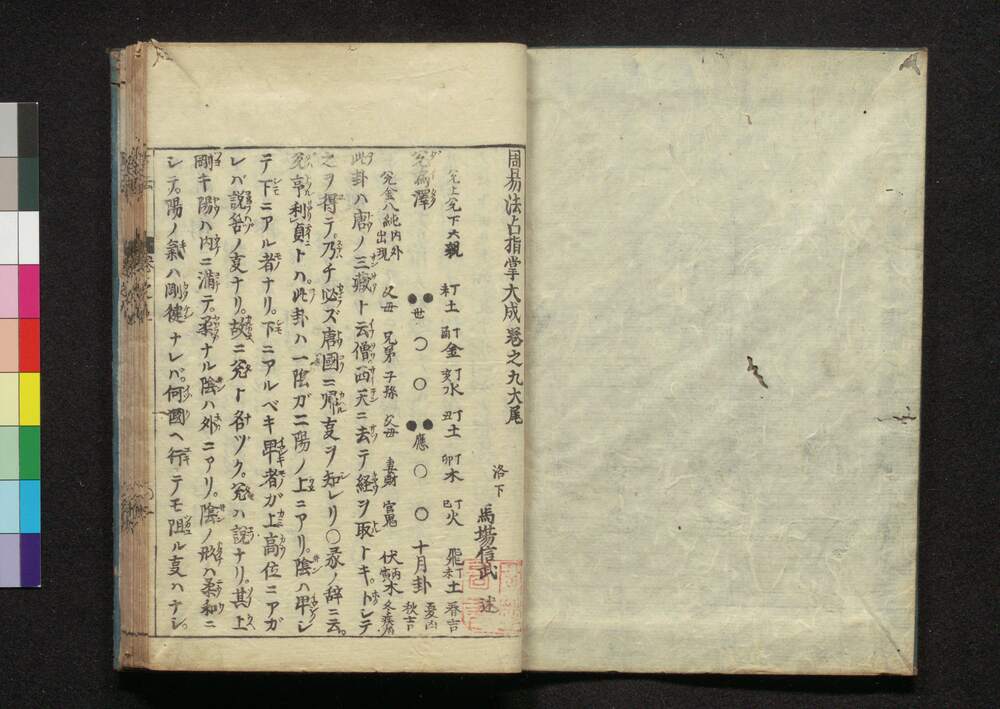 周易法占指掌大成卷之九大尾
洛下 馬場信武 述
兌上兌下 六親 未丁土 酉丁金 亥丁水 丑丁土 卯丁木 巳丁火 飛丁未土 春吉
兌為澤 世 應 十月卦 夏凶 秋吉
兌金八純内外出現 父母 兄弟 子孫 父母 妻財 官鬼 伏丙寅木
此卦ハ唐ノ三藏ト云僧西天ニ去テ経ヲ取トキ。トシテ
之ヲ得テ。乃チ必ズ唐國ニ帰叓ヲ知レリ〇彖ノ辞ニ云。
兌亨利貞トハ。此卦ハ一陰ガ二陽ノ上ニアリ。陰ハ卑シ
テ下ニアル者ナリ。下ニアルベキ卑者ガ上高位ニアガ
レバ説客ノ叓ナリ。故ニ兌ト名ヅク。兌ハ説ナリ。其上
剛キ陽ハ内ニ満テ。柔ナル陰ハ外ニアリ。陰ノ形ハ柔和ニ
シテ。陽ノ氣ハ剛健ナレバ。何國ヘ行テモ阻ル叓ハナシ。